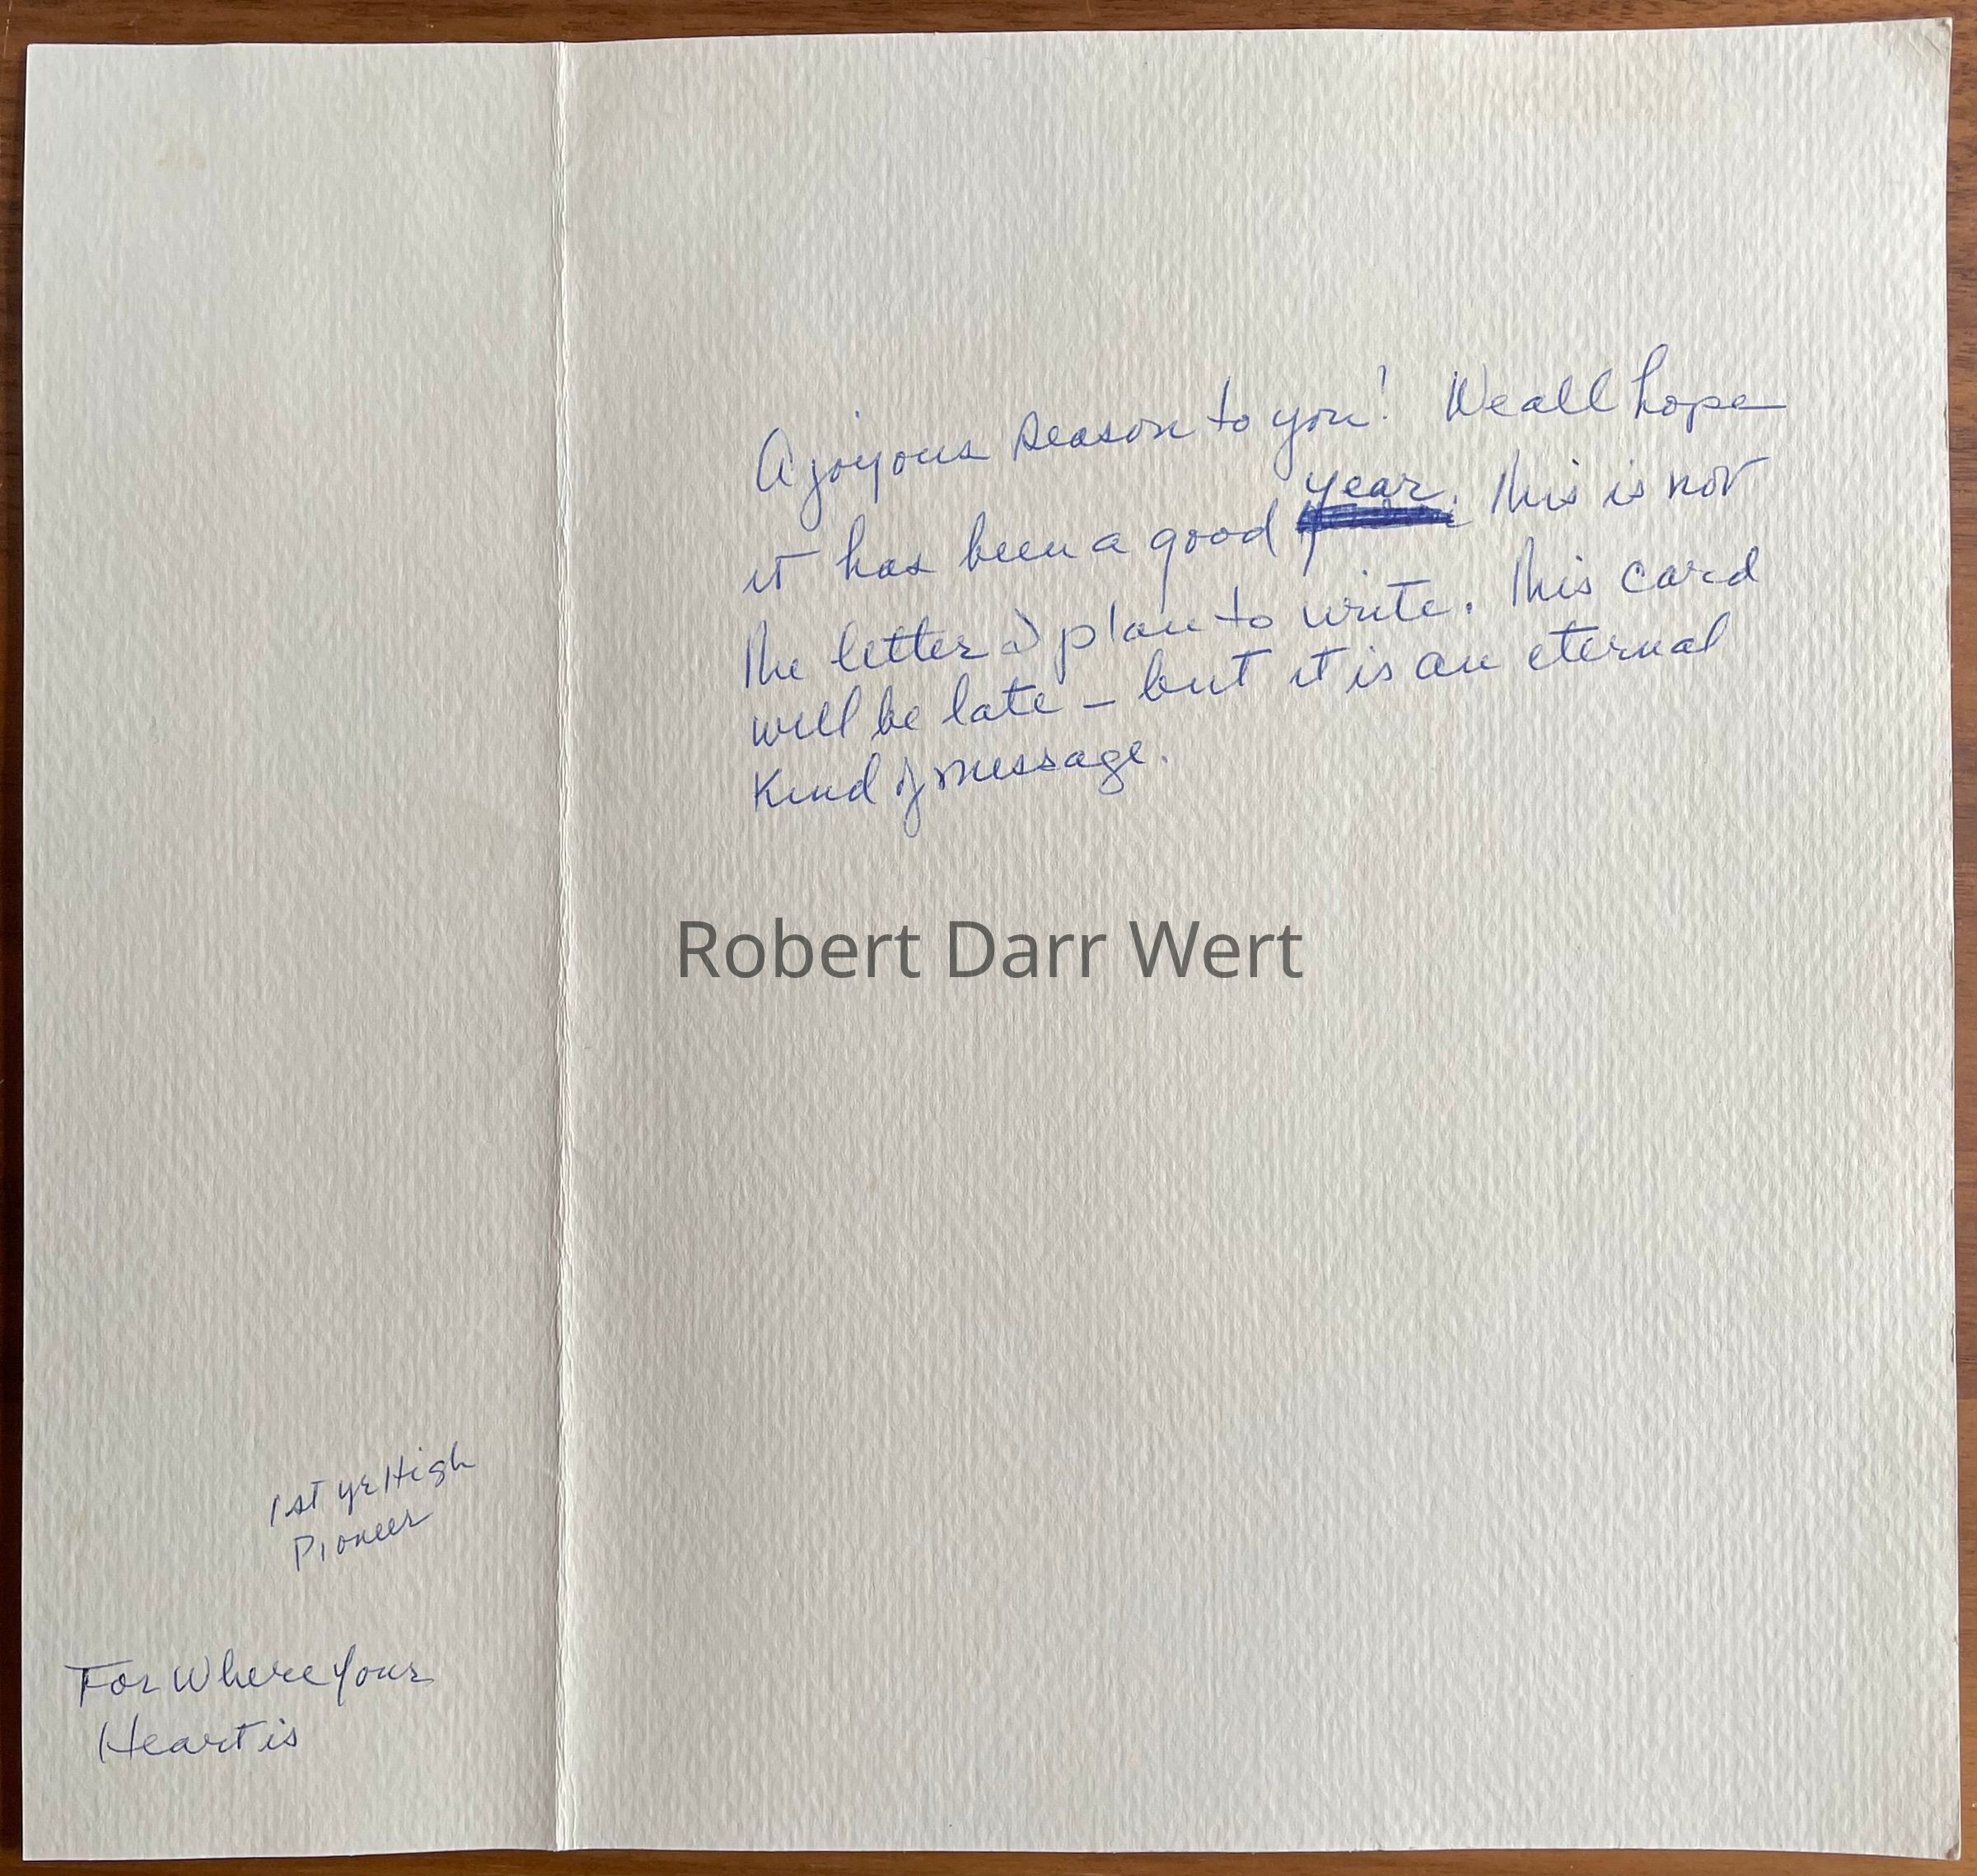 A joyous season to you! We all hope
it has been a good year. This is not
the letter I plan to write. This card
will be late – but it is an eternal
kind of message.
Robert Darr Wert
1st yr High
Pioneer
For Where Your
Heart is